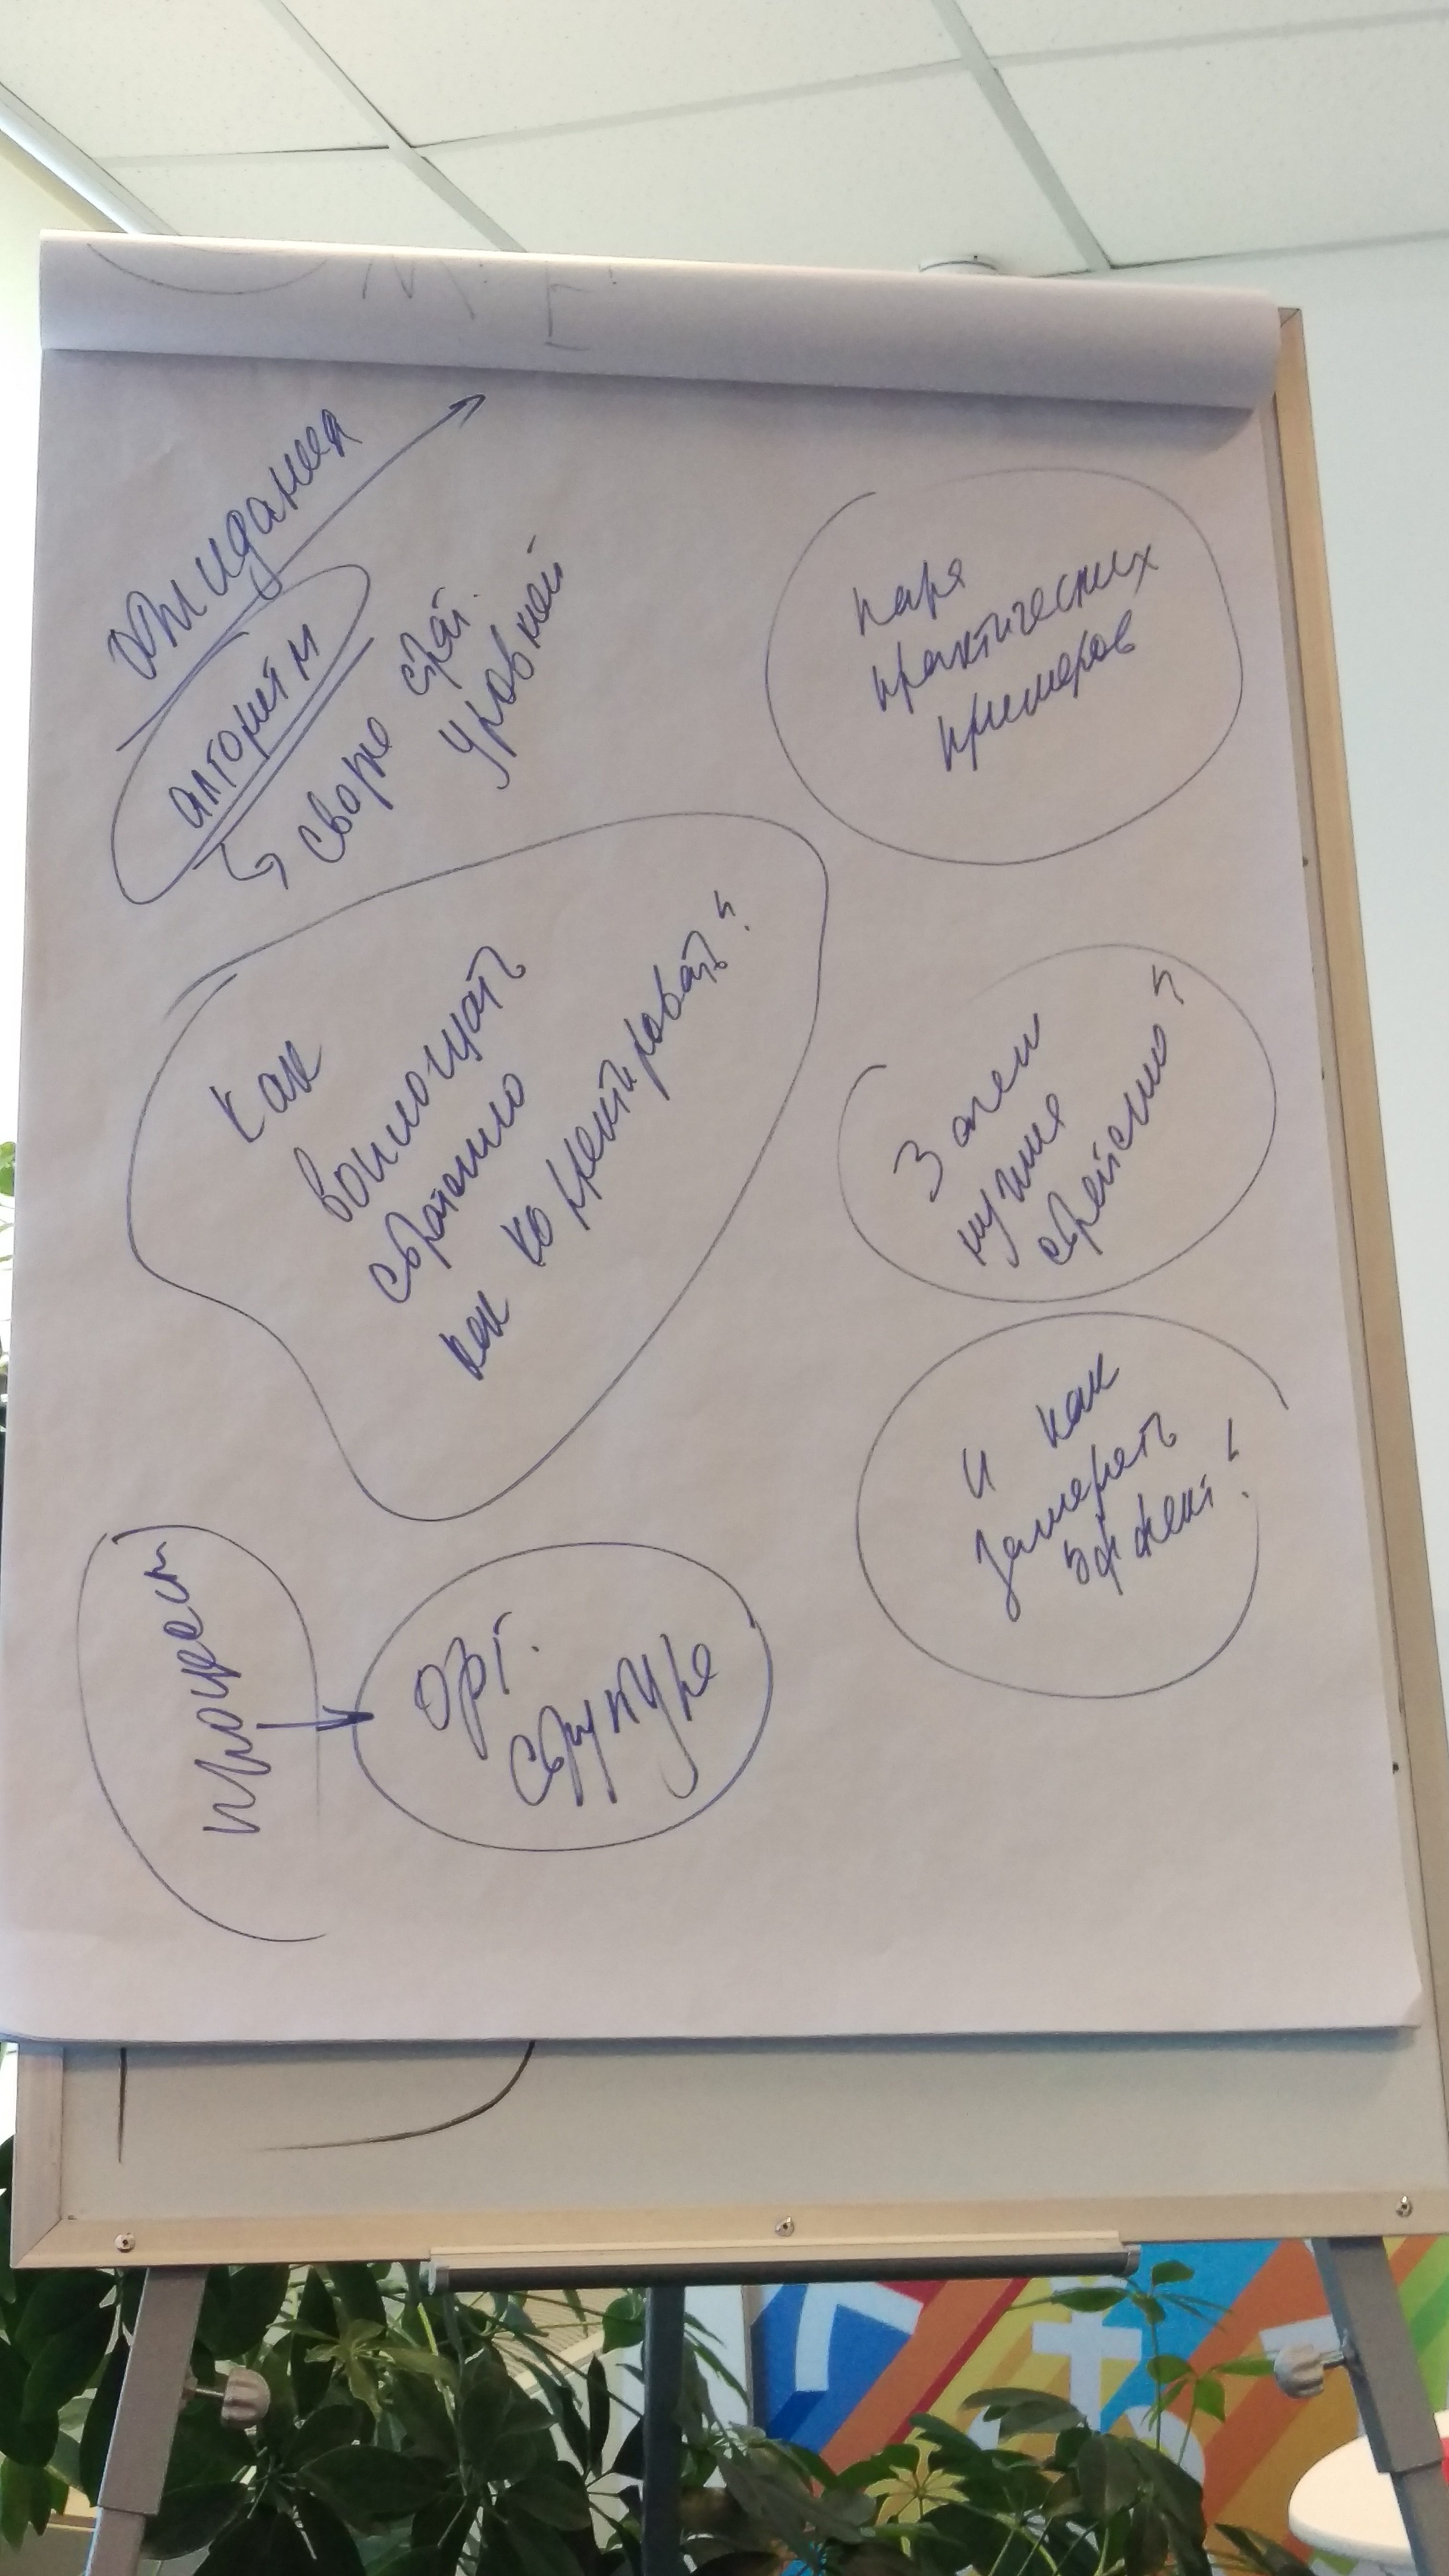 Ожидания
алгоритм
сборке страт.
уровней
пара
практических
примеров
Как
воплощать
стратегию
как корректировать?
Зачем
нужна
стратегия?
и как
замерять
эффект?
процесс
орг.
структура